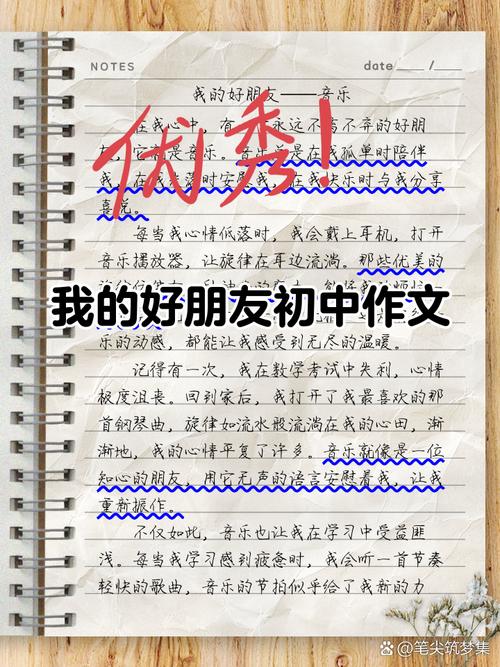 NOTES
date ___/___
我的好朋友——音乐
优秀!
在我心中，有 永远不离不弃的好朋
友，它就是音乐。音乐总是在我孤单时陪伴
我，在我失落时安慰我，在我快乐时与我分享
喜悦。
每当我心情低落时，我会戴上耳机，打开
音乐播放器，让旋律在耳边流淌。那些优美的
我的好朋友初中作文
乐的动感，都能让我感受到无尽的温暖。
记得有一次，我在数学考试中失利，心情
极度沮丧。回到家后，我打开了我最喜欢的那
首钢琴曲，旋律如流水般流淌在我的心田，渐
渐地，我的心情平复了许多。音乐就像是一位
知心的朋友，用它无声的语言安慰着我，让我
重新振作。
不仅如此，音乐也让我在学习中受益匪
浅。每当我学习感到疲惫时，我会听一首节奏
轻快的歌曲，音乐的节拍似乎给了我新的力
@笔尖筑梦集